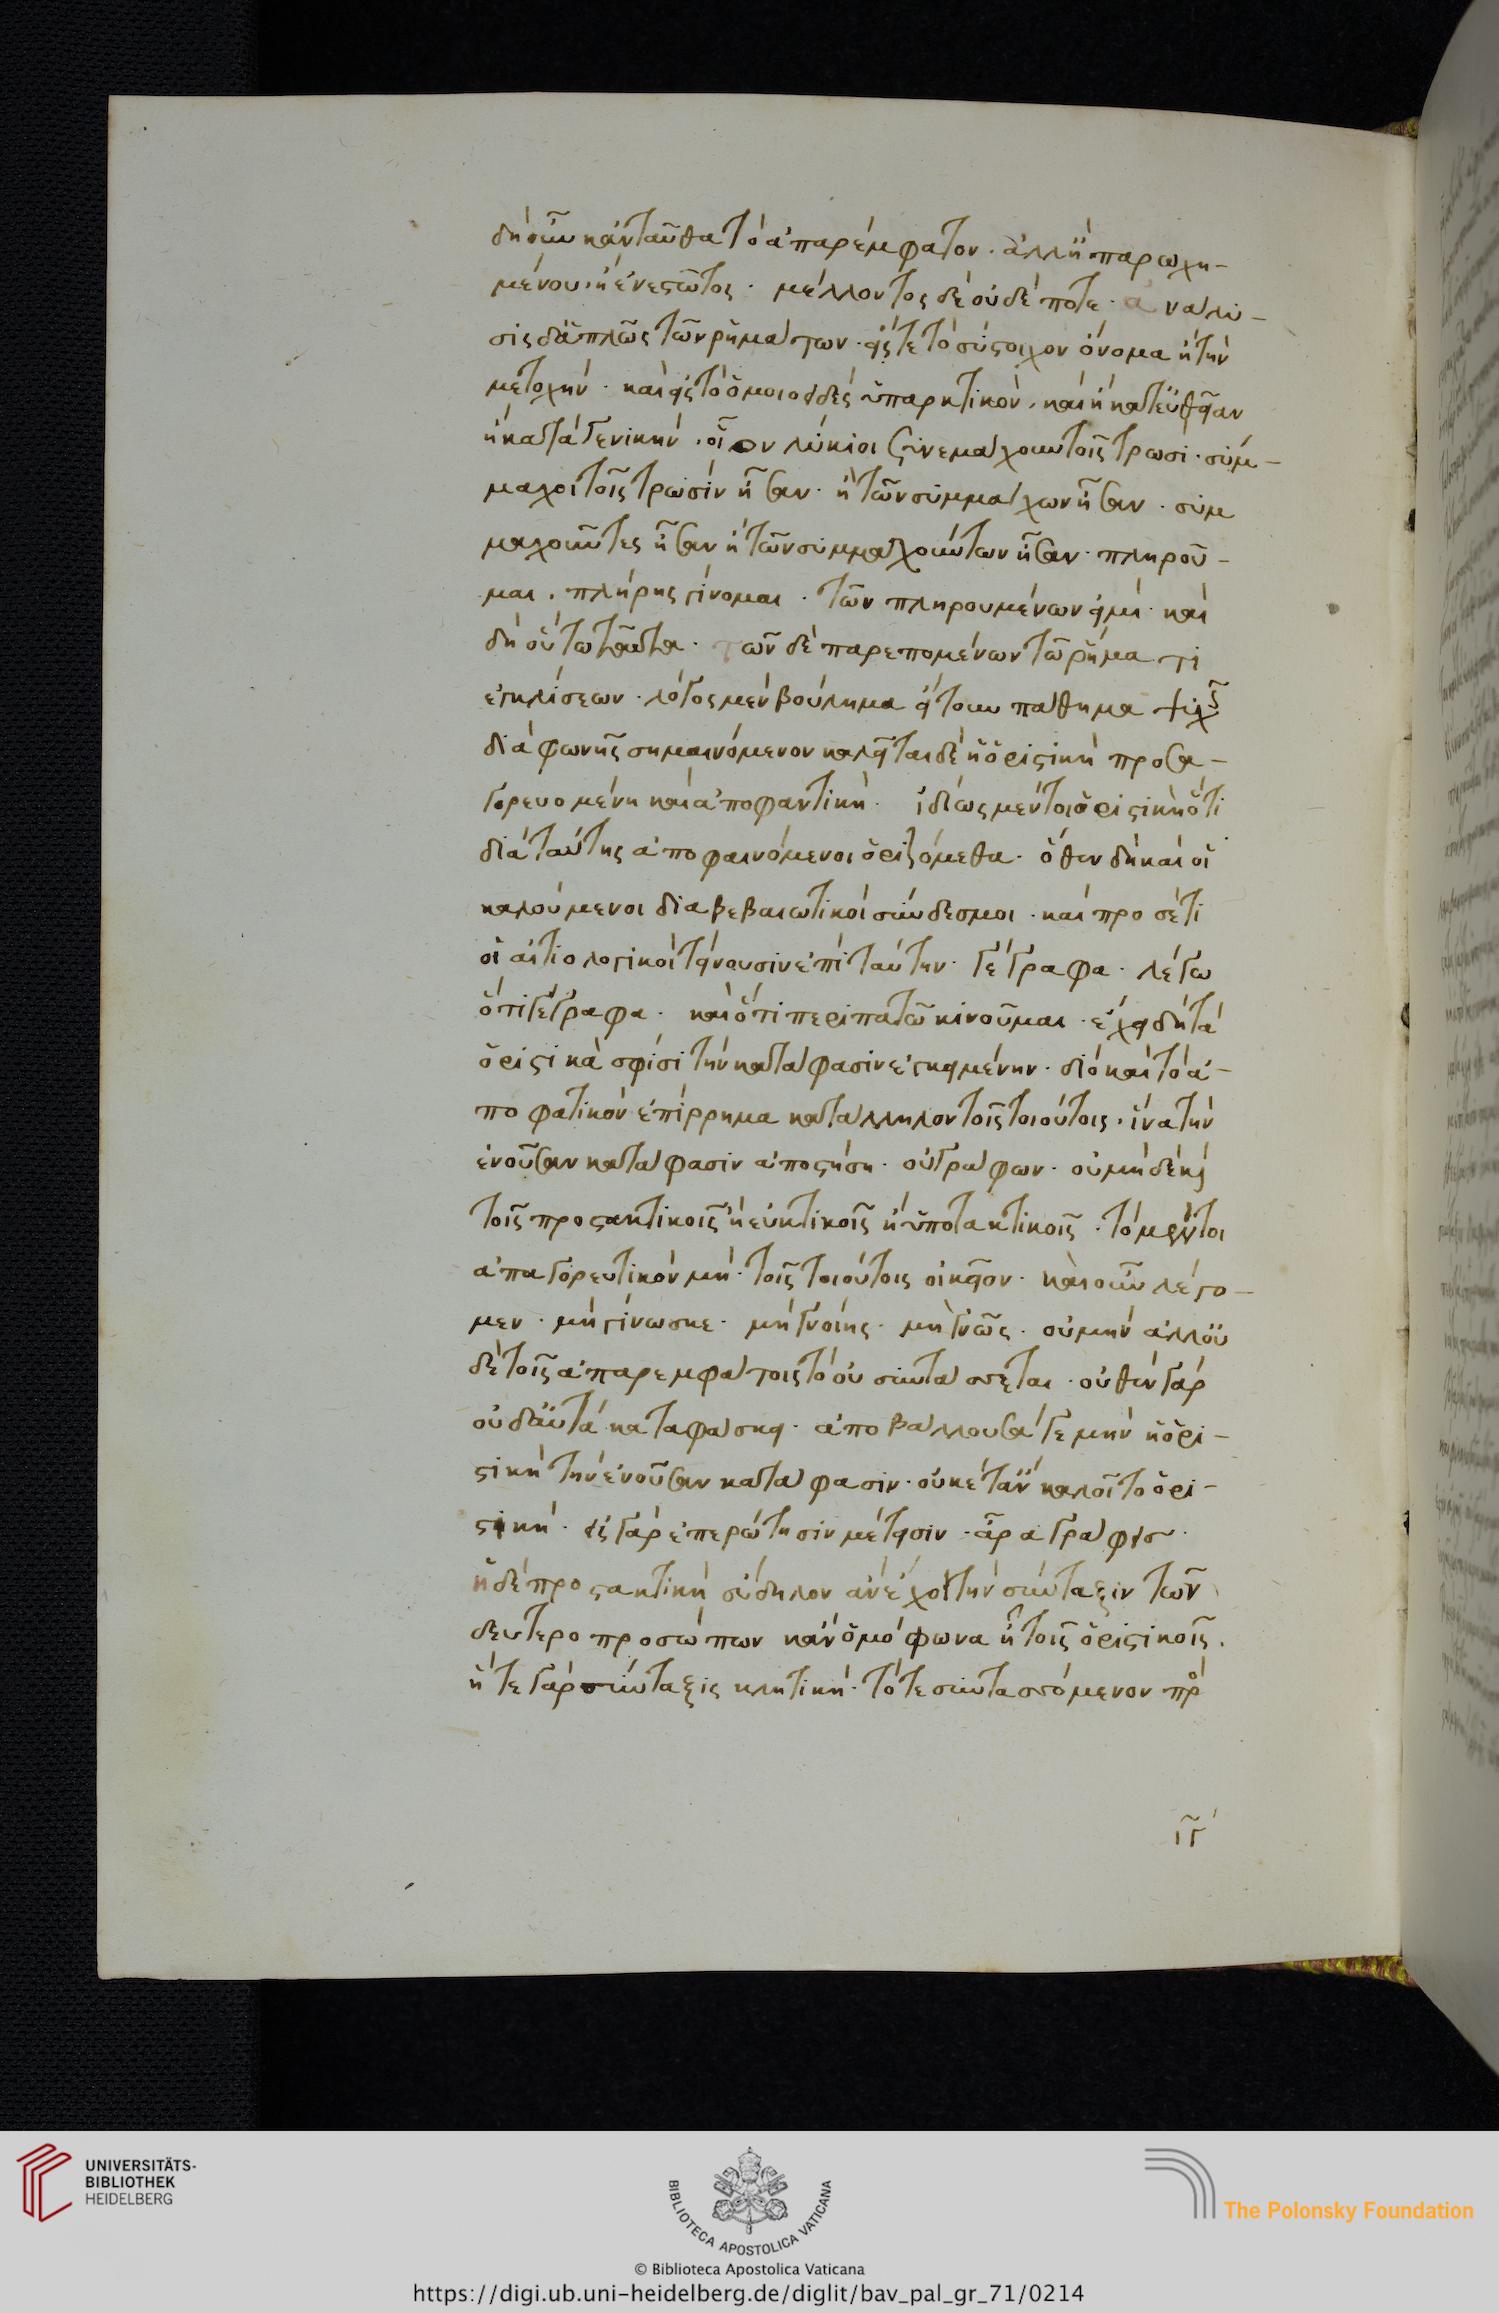 δή οὖν κἀνταῦθα τὸ ἀπαρέμφατον. ἀλλ' ἢ παρωχη-
μένου. ἢ ἐνεστῶτος. μέλλοντος δὲ οὐδέποτε. ἀναλύ-
σις δ' ἁπλῶς τῶν ῥημάτων. εἴς τε τὸ σύστοιχον ὄνομα ἢ τὴν
μετοχήν. καὶ εἰς τὸ ὁμοιοειδὲς ὑπαρκτικόν. καὶ ἢ κατ' εὐθεῖαν
ἢ κατὰ γενικήν. οἷον λύκιοι συνεμάχουν τοῖς τρωσί. σύμ-
μαχοι τοῖς τρωσὶν ἦσαν. ἢ τῶν συμμάχων ἦσαν. συμ
μαχοῦντες ἦσαν ἢ τῶν συμμαχούντων ἦσαν. πληροῦ-
μαι. πλήρης γίνομαι. τῶν πληρουμένων εἰμί. καὶ
δὴ οὕτω ταῦτα. τῶν δὲ παρεπομένων τῷ ῥήματι
ἐγκλίσεων. λόγος μὲν βούλημα εἴτουν πάθημα ψυχῆς
διὰ φωνῆς σημαινόμενον καλεῖται δὲ ἡ ὁριστικὴ προσα-
γορευομένη καὶ ἀποφαντική. ἰδίως μέντοι ὁριστικὴ ὅτι
διὰ ταύτης ἀποφαινόμενοι ὁριζόμεθα. ὅθεν δὴ καὶ οἱ
καλούμενοι διαβεβαιωτικοὶ σύνδεσμοι. καὶ προσέτι
οἱ αἰτιολογικοὶ τείνουσιν ἐπὶ ταύτην. γέγραφα. λέγω
ὅτι γέγραφα. καὶ ὅτι περιπατῶ κινοῦμαι. ἔχει δὴ τὰ
ὁριστικὰ σφίσι τὴν κατάφασιν ἐγκειμένην. διὸ καὶ τὸ ἀ-
ποφατικὸν ἐπίρρημα κατάλληλον τοῖς τοιούτοις. ἵνα τὴν
ἐνοῦσαν κατάφασιν ἀποστήσῃ. οὐ γράφων. οὐ μὴ δὲ καὶ
τοῖς προστακτικοῖς ἢ εὐκτικοῖς ἢ ὑποτακτικοῖς. τὸ μέντοι
ἀπαγορευτικὸν μή. τοῖς τοιούτοις οἰκεῖον. καὶ οὖν λέγο-
μεν. μὴ γίνωσκε. μὴ γνοίης. μὴ γνῷς. οὐ μὴν ἀλλ' οὐ
δὲ τοῖς ἀπαρεμφάτοις τὸ οὐ συντάσσεται. οὐθὲν γὰρ
οὐδ' αὐτὰ καταφάσκει. ἀποβάλλουσά γε μὴν ἡ ὁρι-
στικὴ τὴν ἐνοῦσαν κατάφασιν. οὐκέτ' ἂν καλοῖτο ὁρι-
στική. εἰς γὰρ ἐπερώτησιν μέτεισιν. ἆρα γράφεις.
ἡ δὲ προστακτικὴ εὔδηλον ἂν ἔχοι τὴν σύνταξιν τῶν
δευτεροπροσώπων κἂν ὁμόφωνα ᾖ τοῖς ὁριστικοῖς.
ἥ τε γὰρ σύνταξις κλητική. τό τε συντασσόμενον πρὸ
ιγ
UNIVERSITÄTS-
BIBLIOTHEK
HEIDELBERG
BIBLIOTECA APOSTOLICA VATICANA
© Biblioteca Apostolica Vaticana
The Polonsky Foundation
https://digi.ub.uni-heidelberg.de/diglit/bav_pal_gr_71/0214